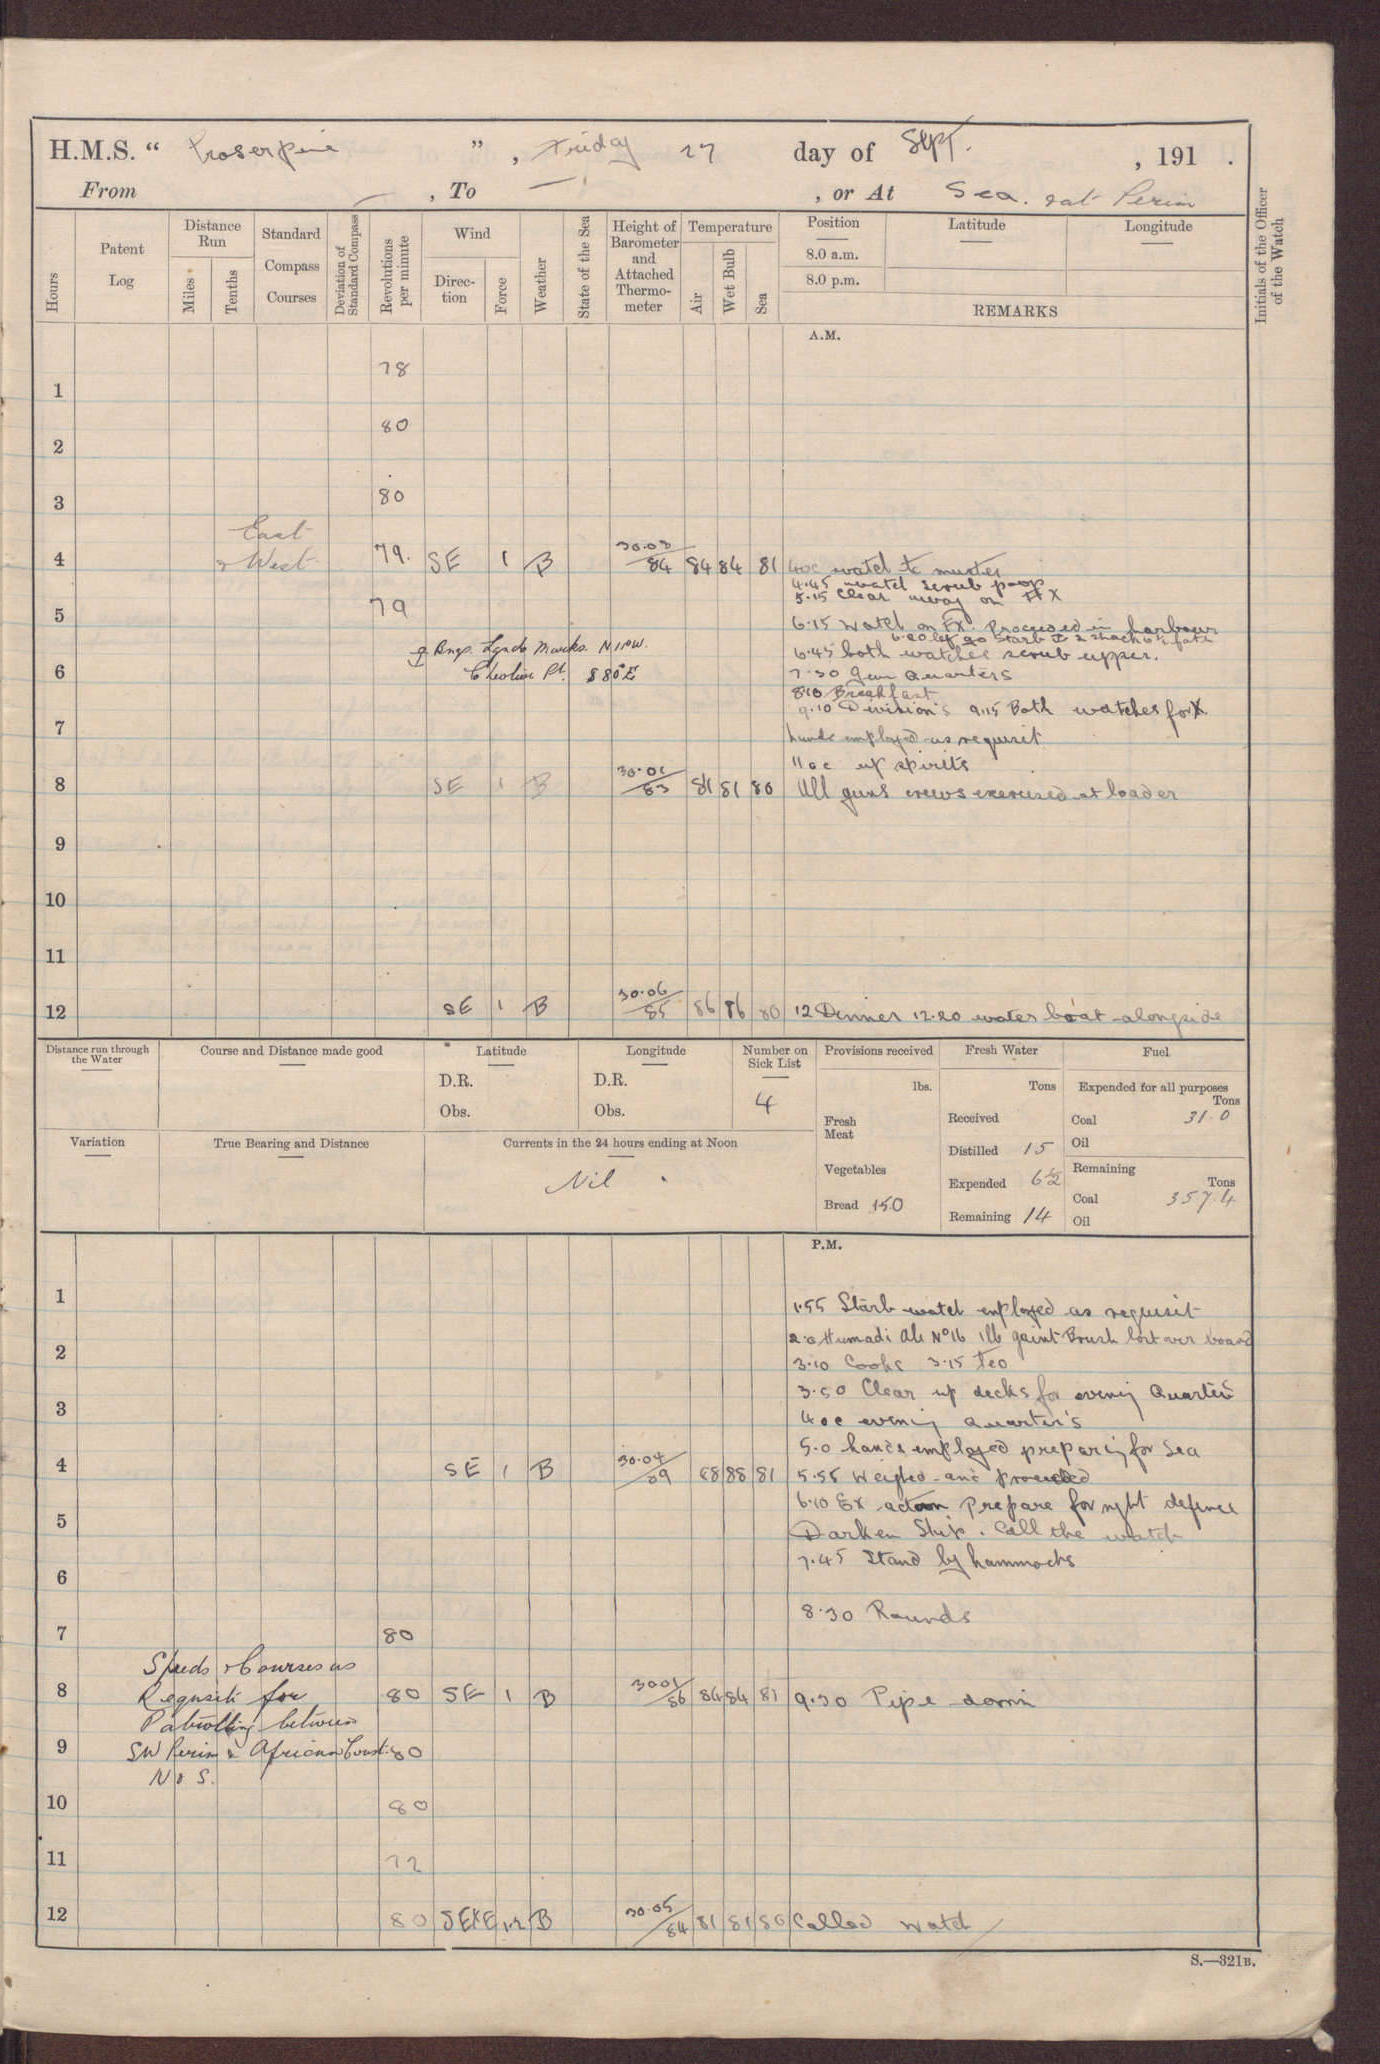 H.M.S. “ Proserpine ” , Friday 27 day of Sept. , 191 .
From — , To — , or At Sea. & at Perim
Hours
Patent Log
Distance Run
Miles
Tenths
Standard Compass Courses
Deviation of Standard Compass
Revolutions per minute
Wind
Direction
Force
Weather
State of the Sea
Height of Barometer and Attached Thermometer
Temperature
Air
Wet Bulb
Sea
Position
8.0 a.m.
8.0 p.m.
Latitude
Longitude
REMARKS
Initials of the Officer of the Watch
A.M.
78
1
80
2
80
3
East
4 & West 79. SE 1 B 30.03/84 84 84 81 4oc watch to muster
4.45 watch scrub poop
5.15 Clear away on FX
5 79
6.15 Watch on FX. Proceeded in harbour
6.20 let go Starb 2 Shack 6½ fath
Brgs. Leads Marks. N11°W.
6.45 both watches scrub upper.
6 Cheoline Pt. S 80°E 7.30 Gun Quarters
8.10 Breakfast
9.10 Division's 9.15 Both watches for X
7 hands employed as requisit
11oc up spirits
8 SE 1 B 30.01/83 81 81 80 All guns crews exercised at loader
9
10
11
12 SE 1 B 30.06/85 86 86 80 12 Dinner 12.20 water boat alongside
Distance run through the Water
Course and Distance made good
Latitude
D.R.
Obs.
Longitude
D.R.
Obs.
Number on Sick List
4
Provisions received
lbs.
Fresh Meat
Vegetables
Bread 150
Fresh Water
Tons
Received
Distilled 15
Expended 6½
Remaining 14
Fuel
Expended for all purposes
Tons
Coal 31.0
Oil
Remaining
Tons
Coal 357.4
Oil
Variation
True Bearing and Distance
Currents in the 24 hours ending at Noon
Nil
P.M.
1 1.55 Starb watch employed as requisit
2.0 Humadi Ali No 16 1lb paint Brush lost over board
2 3.10 Cooks 3.15 Tea
3.50 Clear up decks for evening Quarters
3 4oc evening Quarter's
5.0 hands employed preparing for Sea
4 SE 1 B 30.04/89 88 88 81 5.55 Weighed and proceeded
6.10 Ex action Prepare for night defence
5 Darken Ship. Call the watch
7.45 Stand by hammocks
6
8.30 Rounds
7 80
Speeds & Courses as
8 Requisite for 80 SE 1 B 30.01/86 84 84 81 9.30 Pipe down
Patrolling between
9 SW Perim & African Coast. 80
N & S.
10 80
11 72
12 80 SE×E 1.2 B 30.05/84 81 81 80 Called Watch
S.—321B.